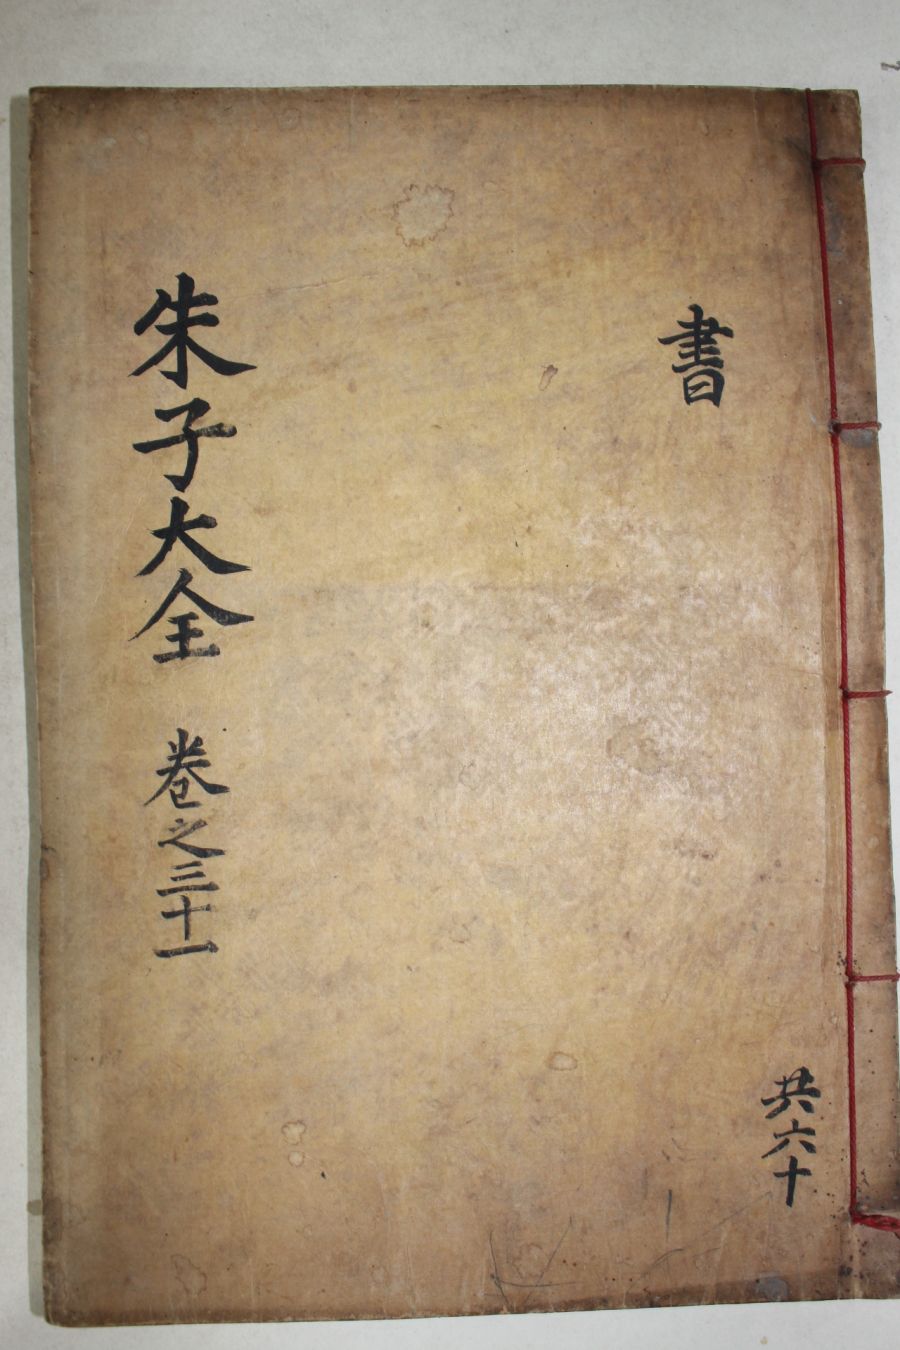 書
朱子大全 卷之三十一
共六十